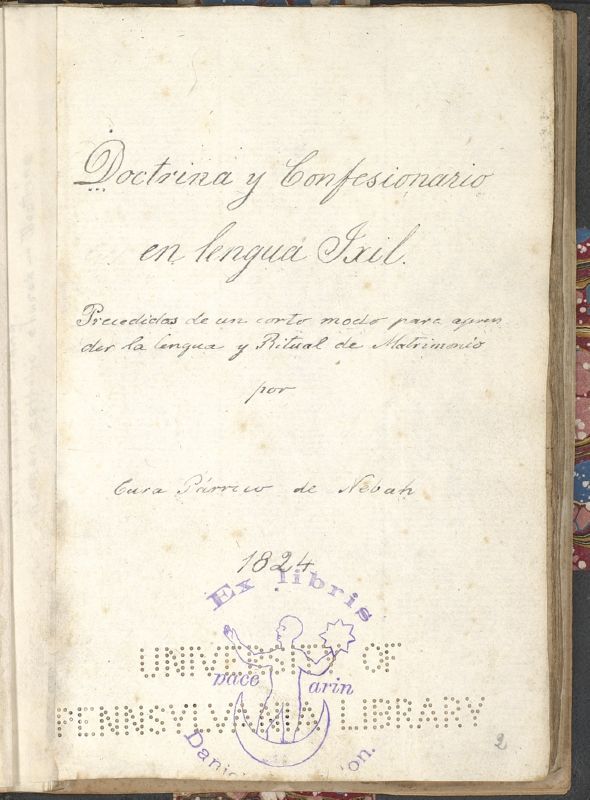 Doctrina y Confesionario
en lengua Ixil.
Precedidas de un corto modo para apren
der la lengua y Ritual de Matrimonio
por
Cura Párrico de Nebah
1824
Ex libris
UNIVERSITY OF
pace arin
PENNSYLVANIA LIBRARY
2